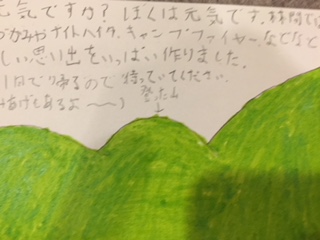 元気ですか?ぼくは元気です。林間では
づかみやナイトハイク、キャンプファイヤー、などなど
しい思い出をいっぱい作りました。
1日で帰るので待っていてください。
みあげもあるよ〜〜)
登った山
↓